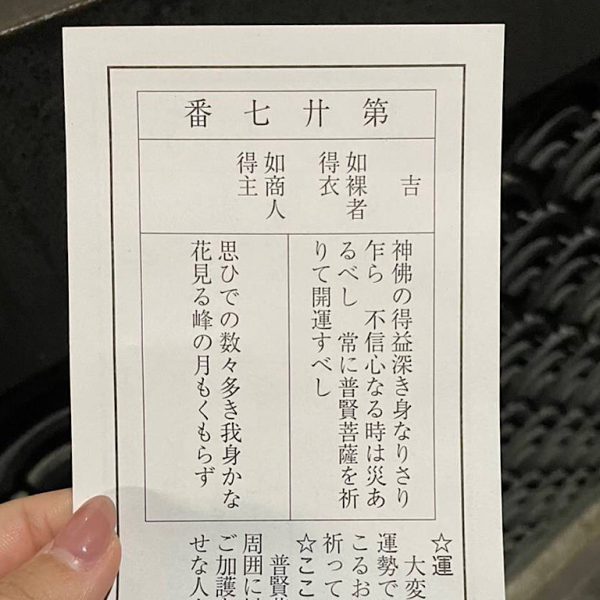 第廿七番
吉
如裸者
得衣
如商人
得主
神佛の得益深き身なりさり
乍ら　不信心なる時は災あ
るべし　常に普賢菩薩を祈
りて開運すべし
思ひでの数々多き我身かな
花見る峰の月もくもらず
☆運
大変
運勢で
こるお
祈って
☆ここ
普賢菩
周囲に
ご加護
せな人